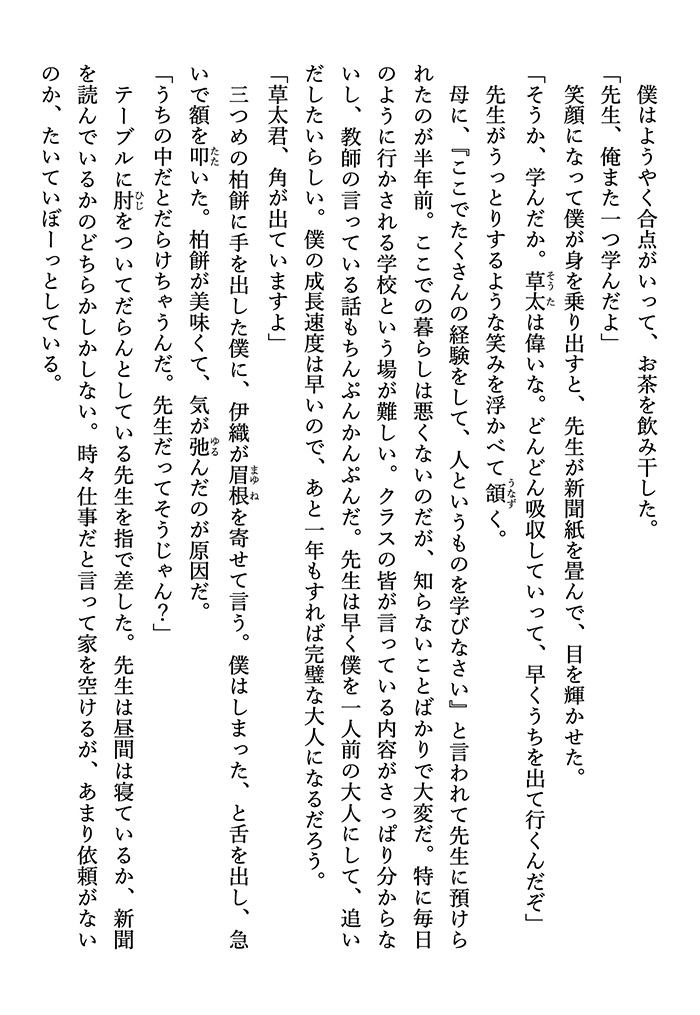 僕はようやく合点がいって、お茶を飲み干した。
「先生、俺また一つ学んだよ」
笑顔になって僕が身を乗り出すと、先生が新聞紙を畳んで、目を輝かせた。
「そうか、学んだか。草太は偉いな。どんどん吸収していって、早くうちを出て行くんだぞ」
先生がうっとりするような笑みを浮かべて頷く。
母に、『ここでたくさんの経験をして、人というものを学びなさい』と言われて先生に預けら
れたのが半年前。ここでの暮らしは悪くないのだが、知らないことばかりで大変だ。特に毎日
のように行かされる学校という場が難しい。クラスの皆が言っている内容がさっぱり分からな
いし、教師の言っている話もちんぷんかんぷんだ。先生は早く僕を一人前の大人にして、追い
だしたいらしい。僕の成長速度は早いので、あと一年もすれば完璧な大人になるだろう。
「草太君、角が出ていますよ」
三つめの柏餅に手を出した僕に、伊織が眉根を寄せて言う。僕はしまった、と舌を出し、急
いで額を叩いた。柏餅が美味くて、気が弛んだのが原因だ。
「うちの中だとだらけちゃうんだ。先生だってそうじゃん?」
テーブルに肘をついてだらんとしている先生を指で差した。先生は昼間は寝ているか、新聞
を読んでいるかのどちらかしかしない。時々仕事だと言って家を空けるが、あまり依頼がない
のか、たいていぼーっとしている。